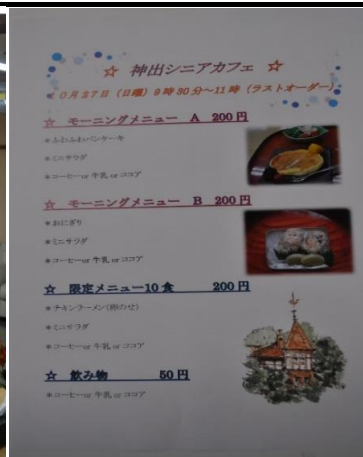 ☆ 神出シニアカフェ ☆
10月27日(日曜)9時30分~11時(ラストオーダー)
☆ モーニングメニュー A 200円
*ふわふわパンケーキ
*ミニサラダ
*コーヒーor 牛乳 or ココア
☆ モーニングメニュー B 200円
*おにぎり
*ミニサラダ
*コーヒーor 牛乳 or ココア
☆ 限定メニュー10食 200円
*チキンラーメン(卵のせ)
*ミニサラダ
*コーヒーor 牛乳 or ココア
☆ 飲み物 50円
*コーヒーor 牛乳 or ココア